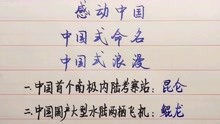 感动中国
中国式命名
中国式浪漫
一.中国首个南极内陆考察站：昆仑
二.中国国产大型水陆两栖飞机：鲲龙